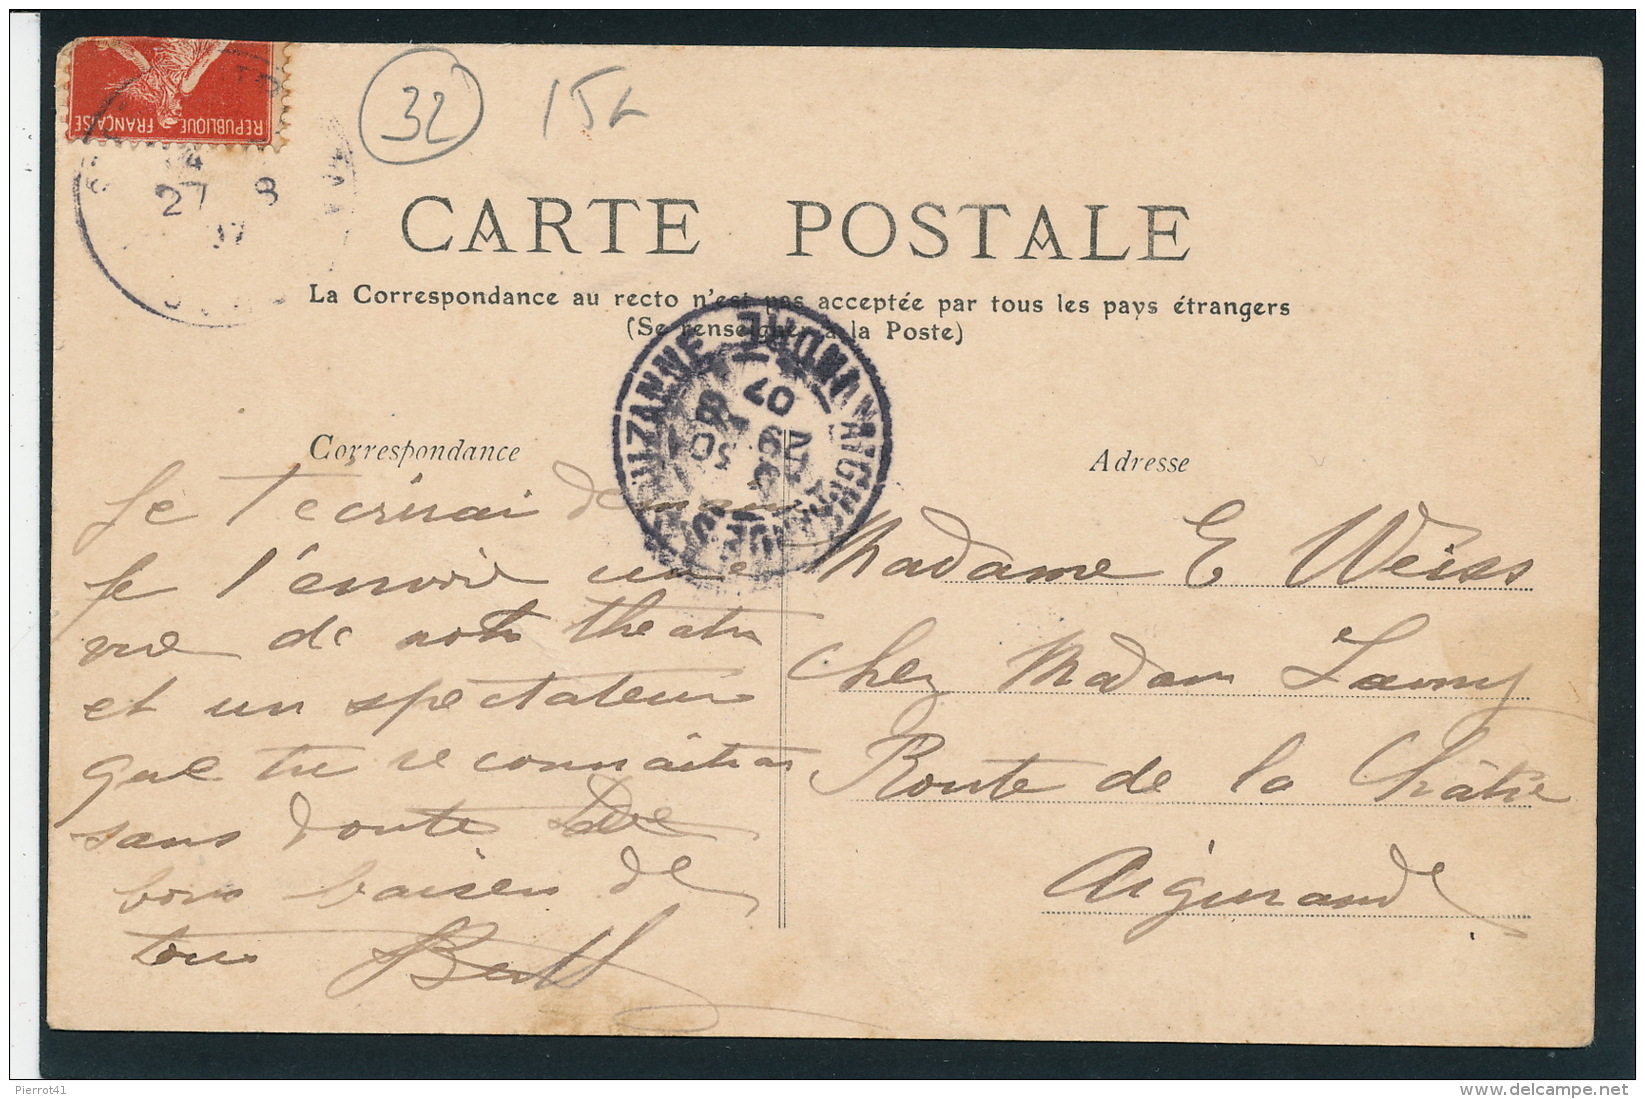 REPUBLIQUE FRANÇAISE
32
15
27 8
07
CARTE POSTALE
La Correspondance au recto n'est pas acceptée par tous les pays étrangers
(Se renseigner à la Poste)
AIGURANDE
07
Correspondance
Je t'ecrirai demain
Je t'envoie une
vue de notre theatre
et un spectateur
que tu reconnaitras
sans doute
bons baisers de
tous
Adresse
Madame E Weiss
chez Madame
Route de la Châtre
Aigurande
Pierrot41
www.delcampe.net